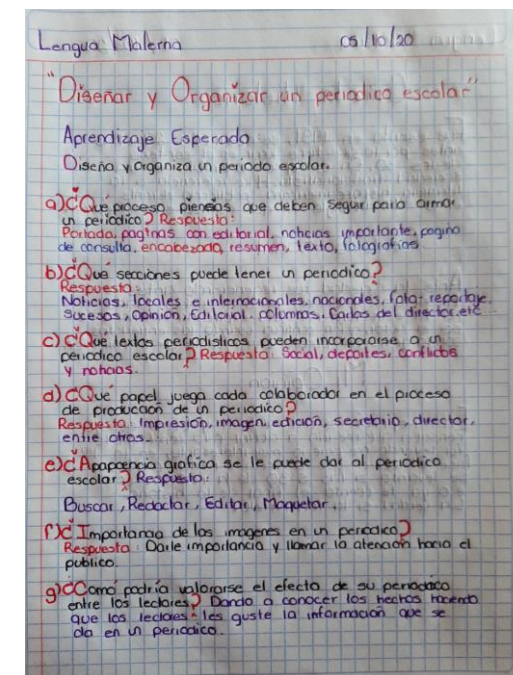 Lengua Materna 05/10/20
"Diseñar y Organizar un periodico escolar"
Aprendizaje Esperado
Diseña y Organiza un periodo escolar.
a)¿Que proceso piensas que deben seguir para armar
un periodico? Respuesta:
Portada, paginas con editorial, noticias importante, pagina
de consulta, encabezado, resumen, texto, fotografias
b)¿Que secciones puede tener un periodico?
Respuesta:
Noticias, locales e internacionales, nacionales, foto-reportaje,
Sucesos, Opinión, Editorial, columnas, Cartas del director, etc
c)¿Qué textos periodisticos pueden incorporarse a un
periodico escolar? Respuesta: Social, deportes, conflictos
y noticias.
d)¿Que papel juega cada colaborador en el proceso
de producción de un periodico?
Respuesta: Impresión, imagen, edición, secretario, director,
entre otros.
e)¿Apapencia grafica se le puede dar al periódico
escolar? Respuesta:
Buscar, Redactar, Editar, Maquetar.
f)¿Importancia de las imagenes en un periodico?
Respuesta: Darle importancia y llamar la atención hacia el
publico.
g)¿Como podría valorarse el efecto de su periodico
entre los lectores? Dando a conocer los hechos haciendo
que los lectores les guste la información que se
da en un periodico.